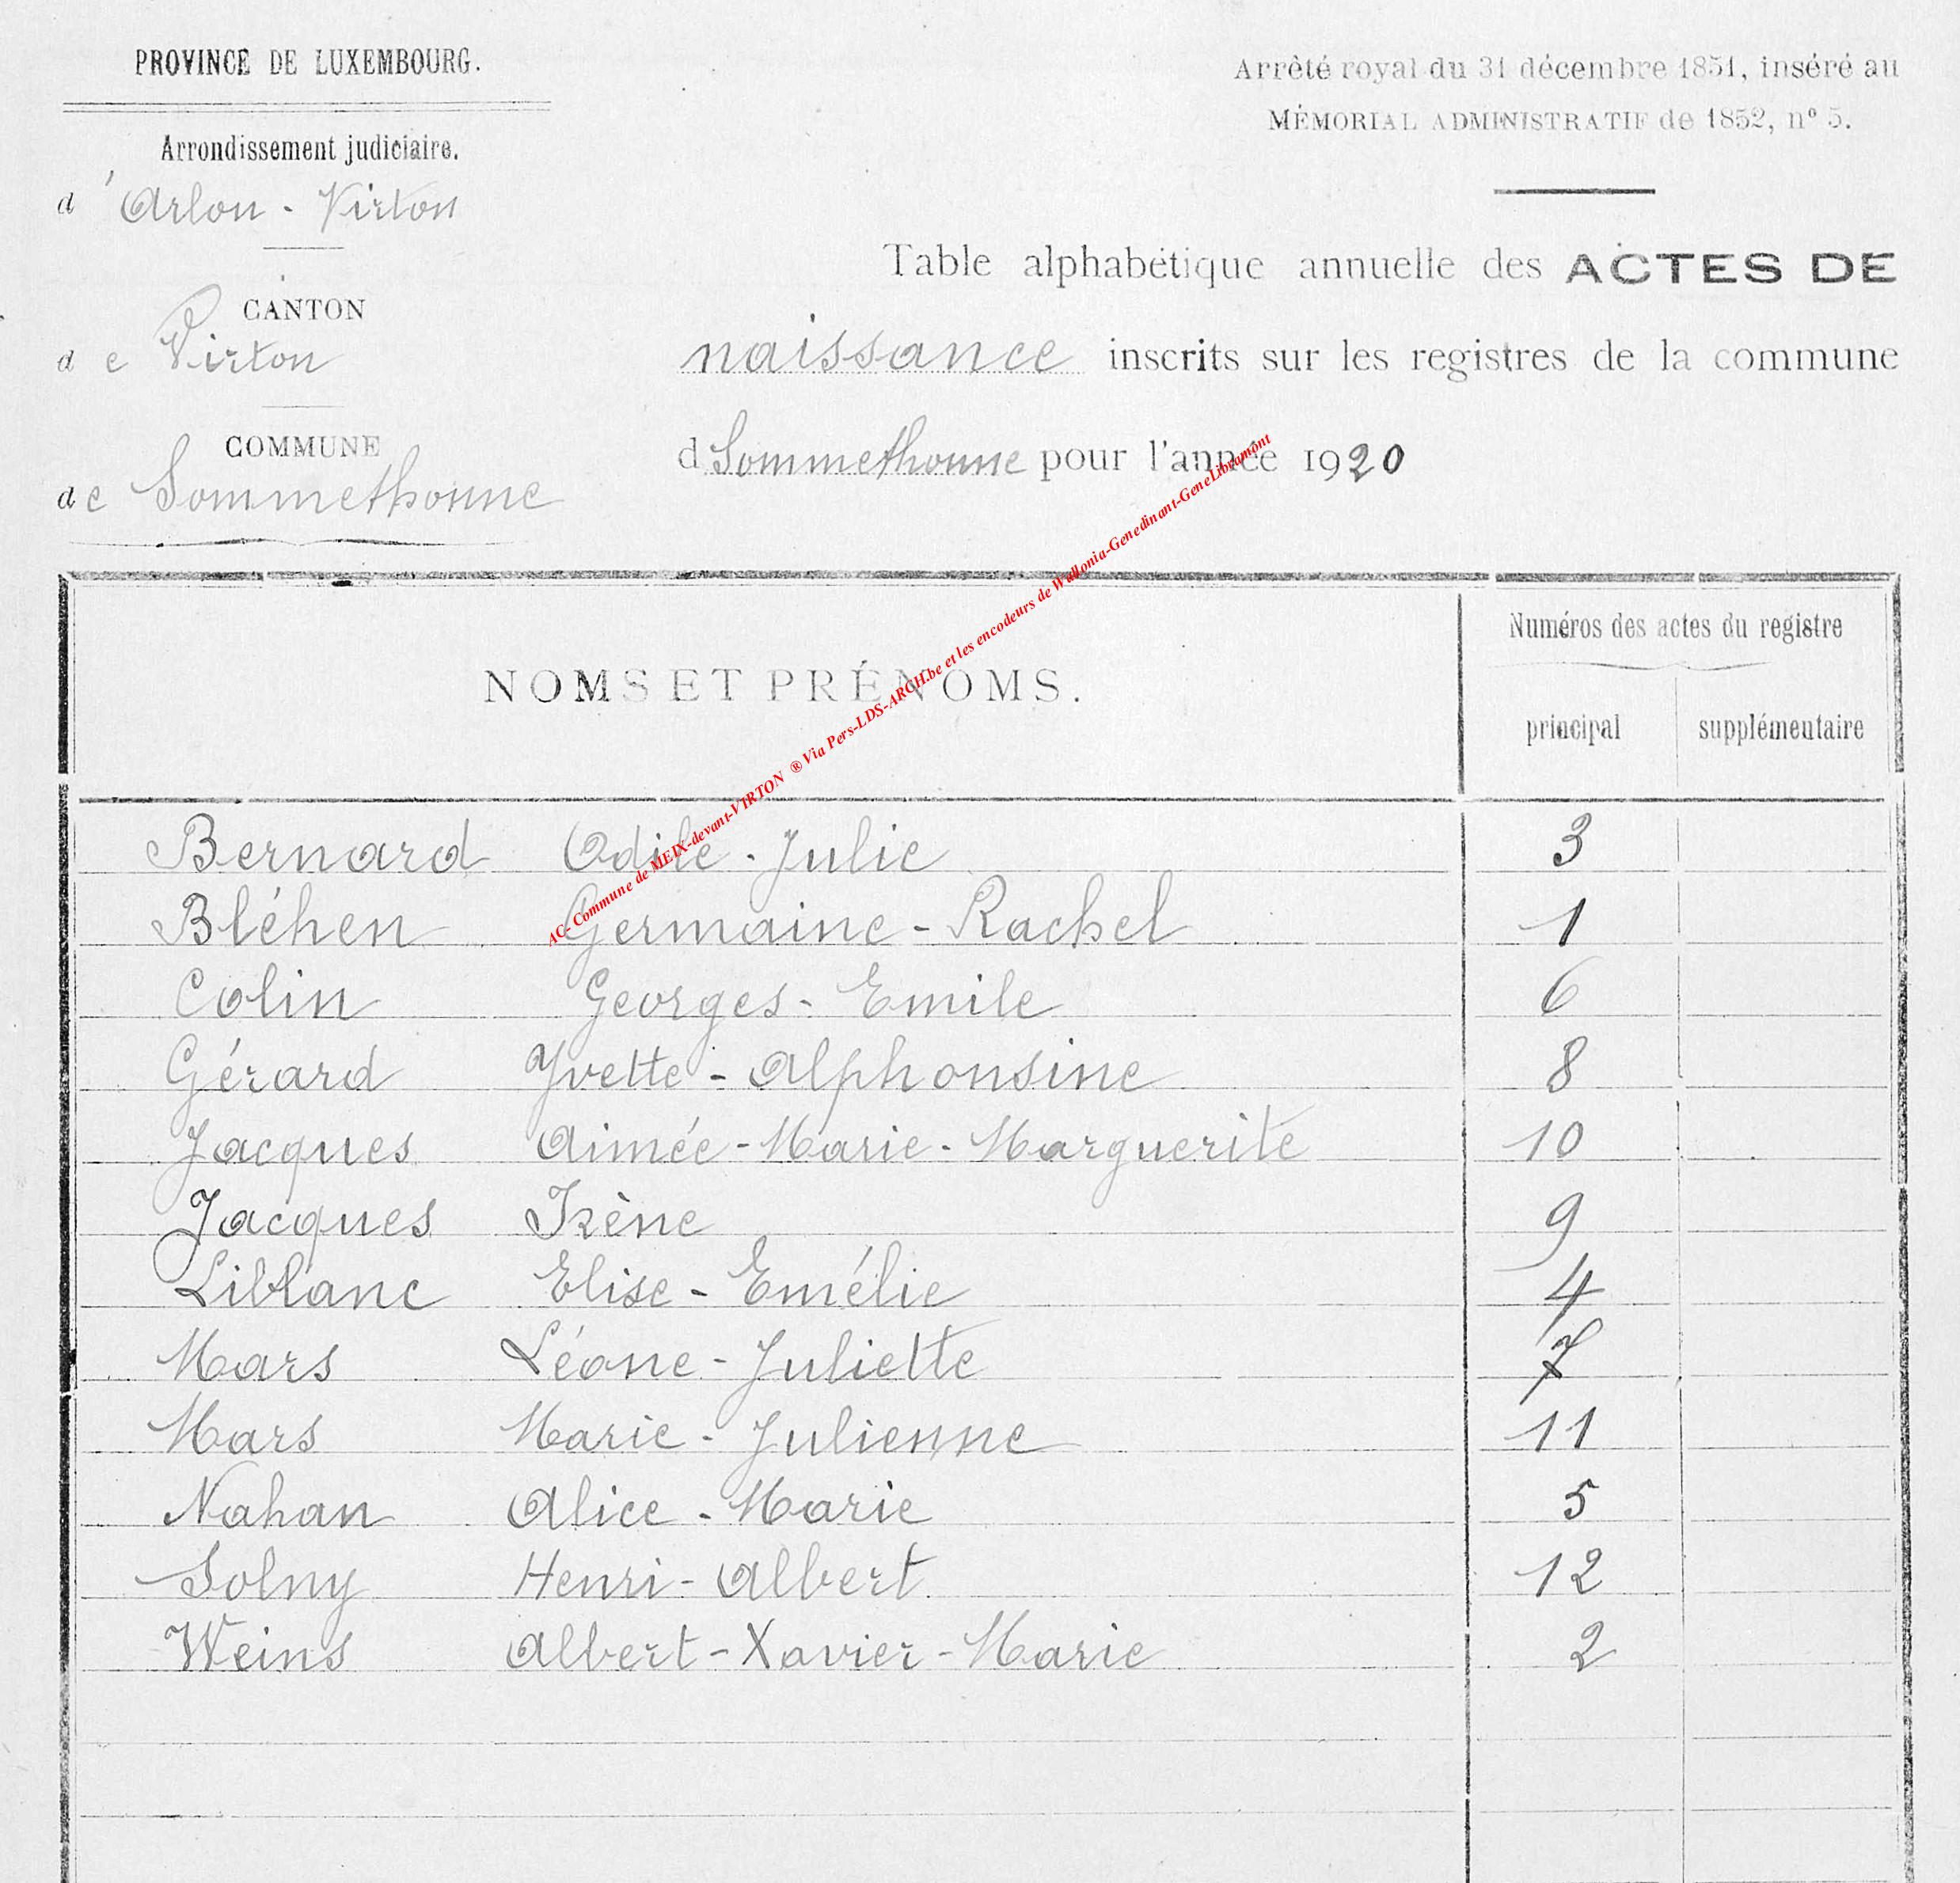 PROVINCE DE LUXEMBOURG.
Arrondissement judiciaire.
d'Arlon - Virton
CANTON
de Virton
COMMUNE
de Sommethonne
Arrêté royal du 31 décembre 1851, inséré au
MÉMORIAL ADMINISTRATIF de 1852, n° 5.
Table alphabétique annuelle des ACTES DE
naissance inscrits sur les registres de la commune
d Sommethonne pour l'année 1920
NOMS ET PRÉNOMS.
Numéros des actes du registre
principal supplémentaire
AC- Commune de MEIX-devant-VIRTON ® Via Pers-LDS-ARCH.be et les encodeurs de Wallonia-Genedinant-GeneLibramont
Bernard Odile - Julie 3
Bléhen Germaine - Rachel 1
Colin Georges - Emile 6
Gérard Yvette - Alphonsine 8
Jacques Aimée - Marie - Marguerite 10
Jacques Irène 9
Liblanc Elise - Emélie 4
Mars Léone - Juliette 7
Mars Marie - Julienne 11
Nahan Alice - Marie 5
Solny Henri - Albert 12
Weins Albert - Xavier - Marie 2